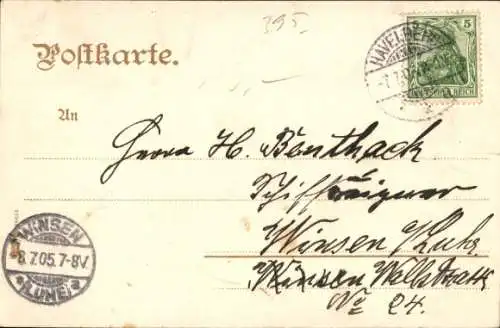 395.
Postkarte.
HAVELBERG
5
-7.7.05
REICH
An
Herrn H. Benthack
Schiffseigner
Winsen / Luhe
Winsen
No 24.
WINSEN
8.7.05. 7-8V
* (LUHE) *